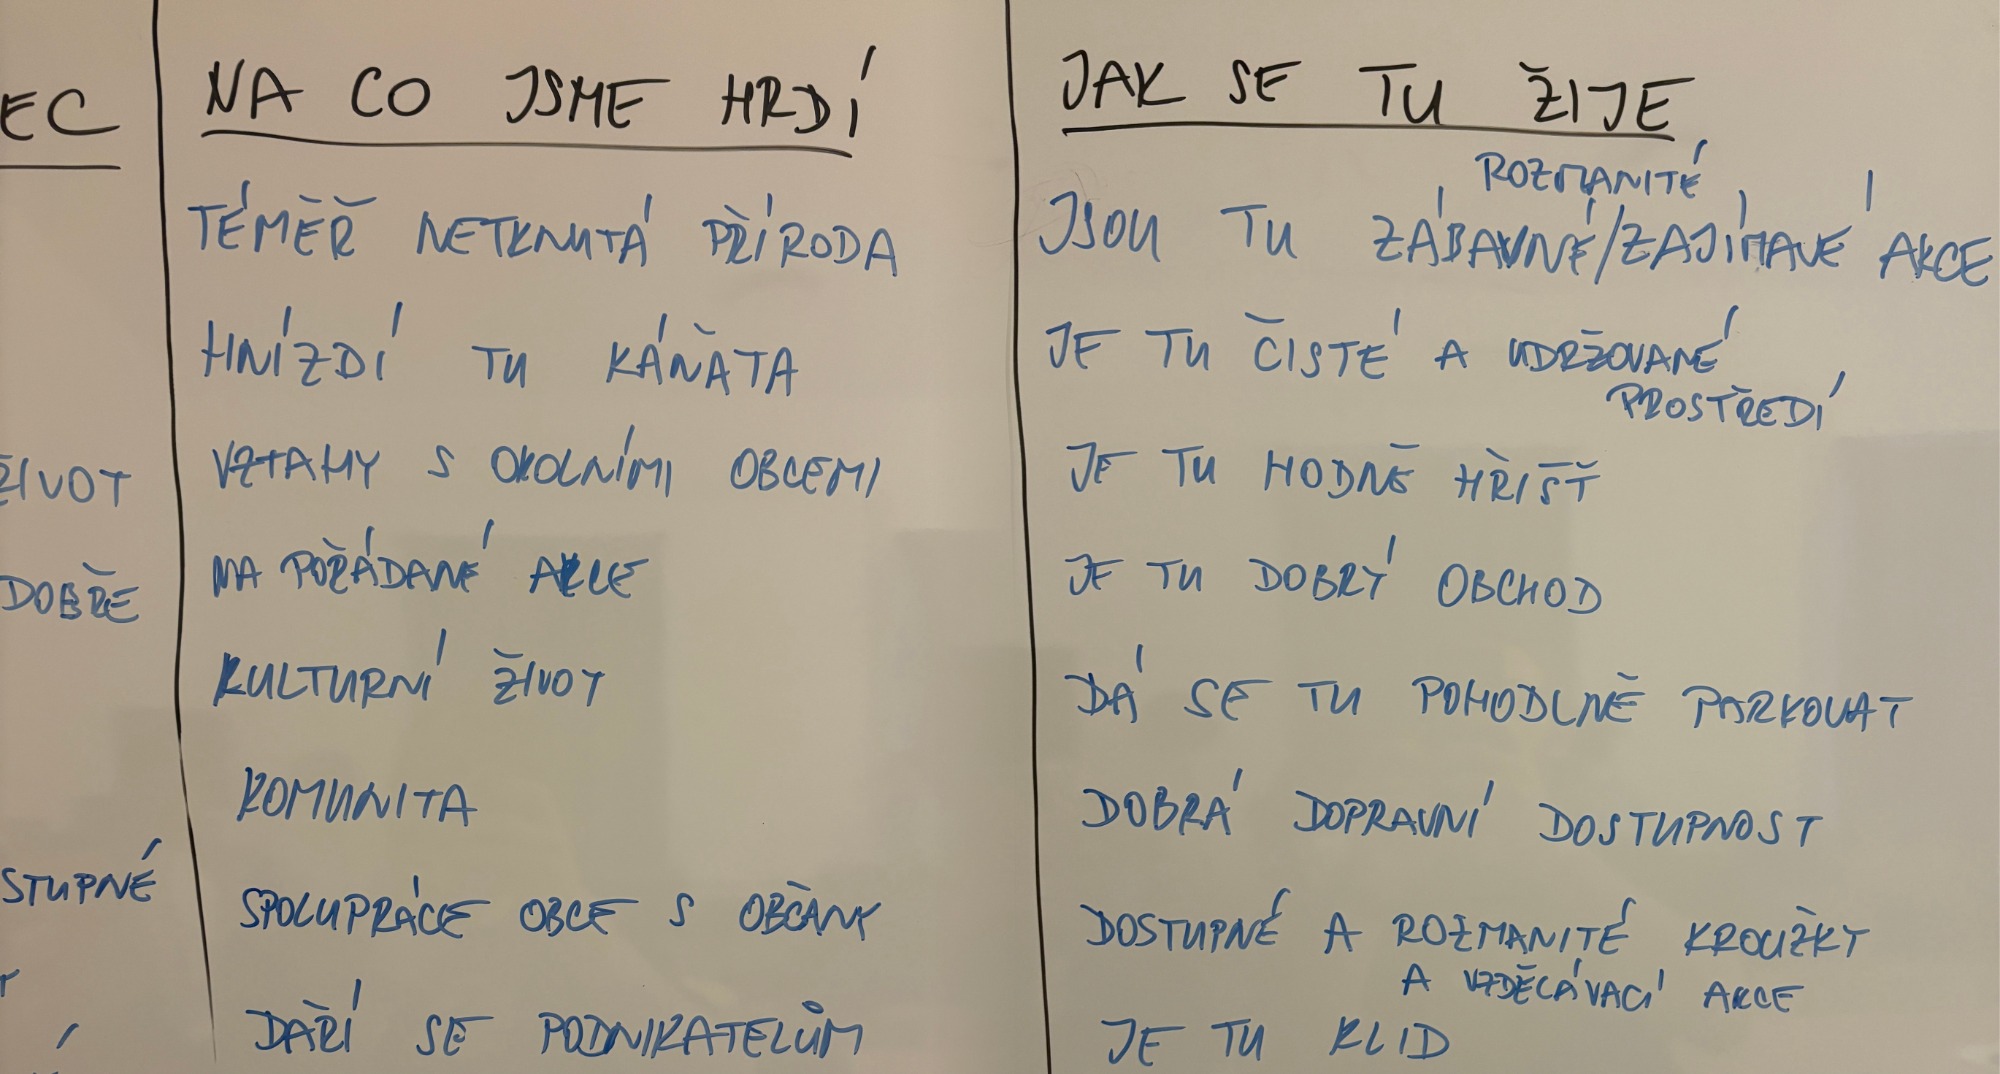 EC
ŽIVOT
DOBŘE
STUPNÉ
NA CO JSME HRDÍ
TÉMĚŘ NETKNUTÁ PŘÍRODA
HNÍZDÍ TU KÁŇATA
VZTAHY S OKOLNÍMI OBCEMI
NA POŘÁDANÉ AKCE
KULTURNÍ ŽIVOT
KOMUNITA
SPOLUPRÁCE OBCE S OBČANY
DAŘÍ SE PODNIKATELŮM
JAK SE TU ŽIJE
ROZMANITÉ
JSOU TU ZÁBAVNÉ/ZAJÍMAVÉ AKCE
JE TU ČISTÉ A UDRŽOVANÉ
PROSTŘEDÍ
JE TU HODNĚ HŘIŠŤ
JE TU DOBRÝ OBCHOD
DÁ SE TU POHODLNĚ PARKOVAT
DOBRÁ DOPRAVNÍ DOSTUPNOST
DOSTUPNÉ A ROZMANITÉ KROUŽKY
A VZDĚLÁVACÍ AKCE
JE TU KLID